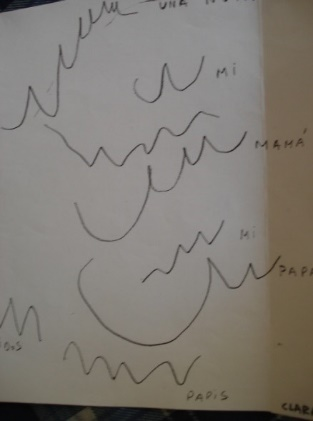 UNA
MI
MAMÁ
MI
PAPÁ
DOS
PAPIS
CLARA